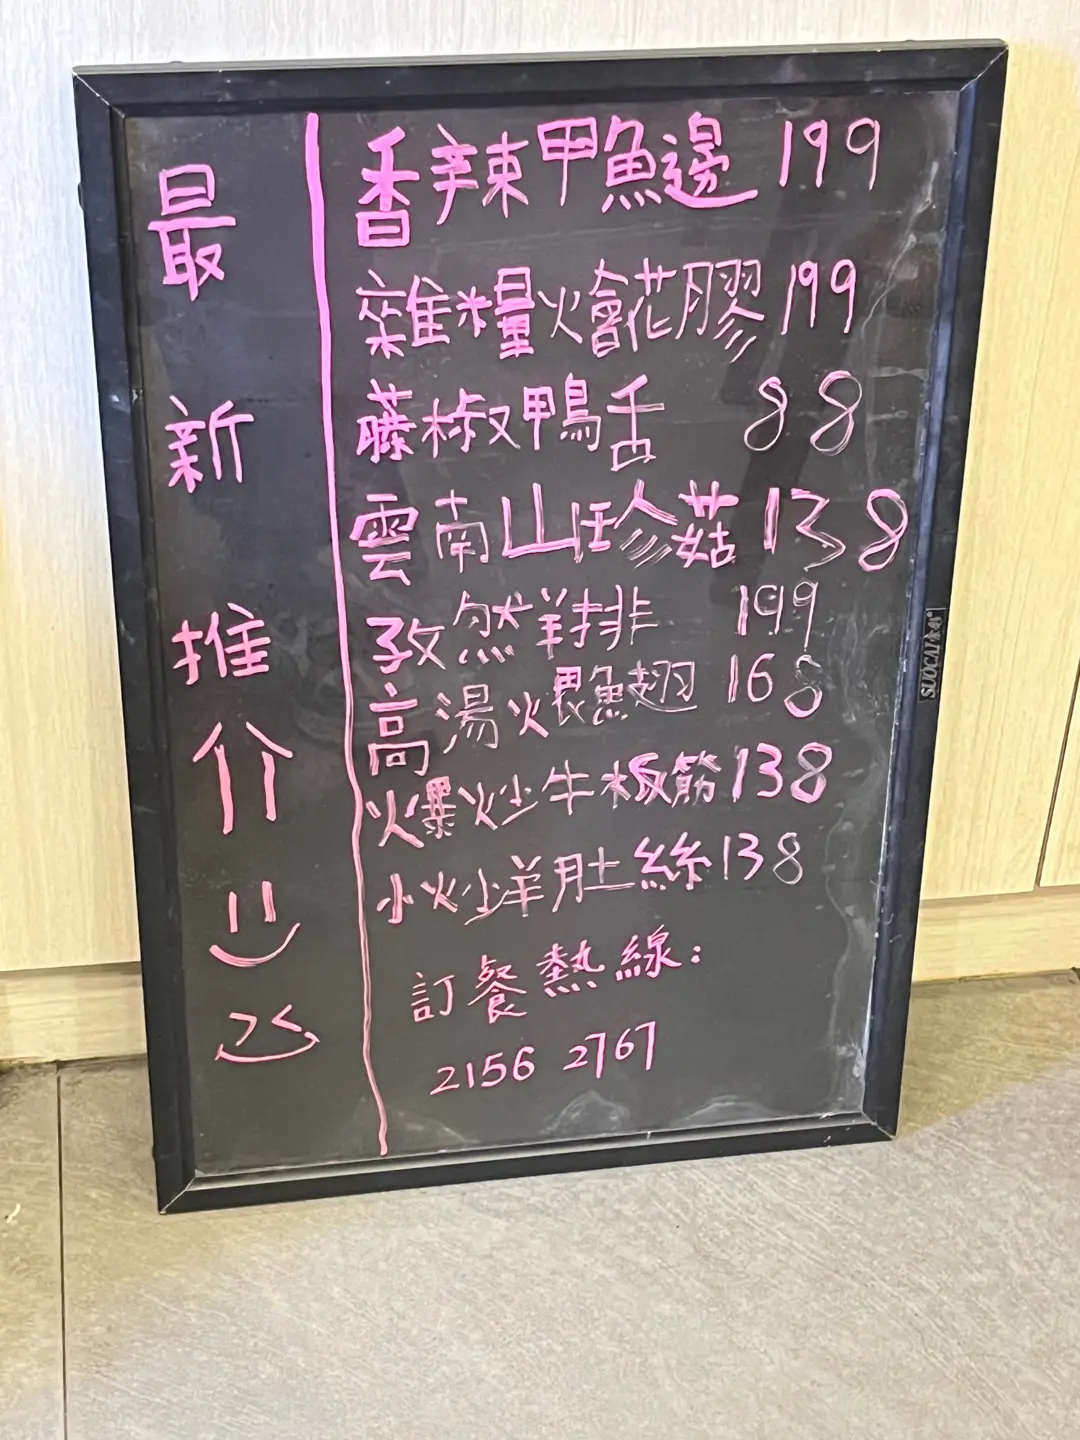 最新推介
香辣甲魚邊 199
雜糧燴花膠 199
藤椒鴨舌 88
雲南山珍菇 138
孜然羊排 199
高湯煨魚翅 168
爆炒牛板筋 138
小炒羊肚絲 138
訂餐熱線：
2156 2767
SUOCAI